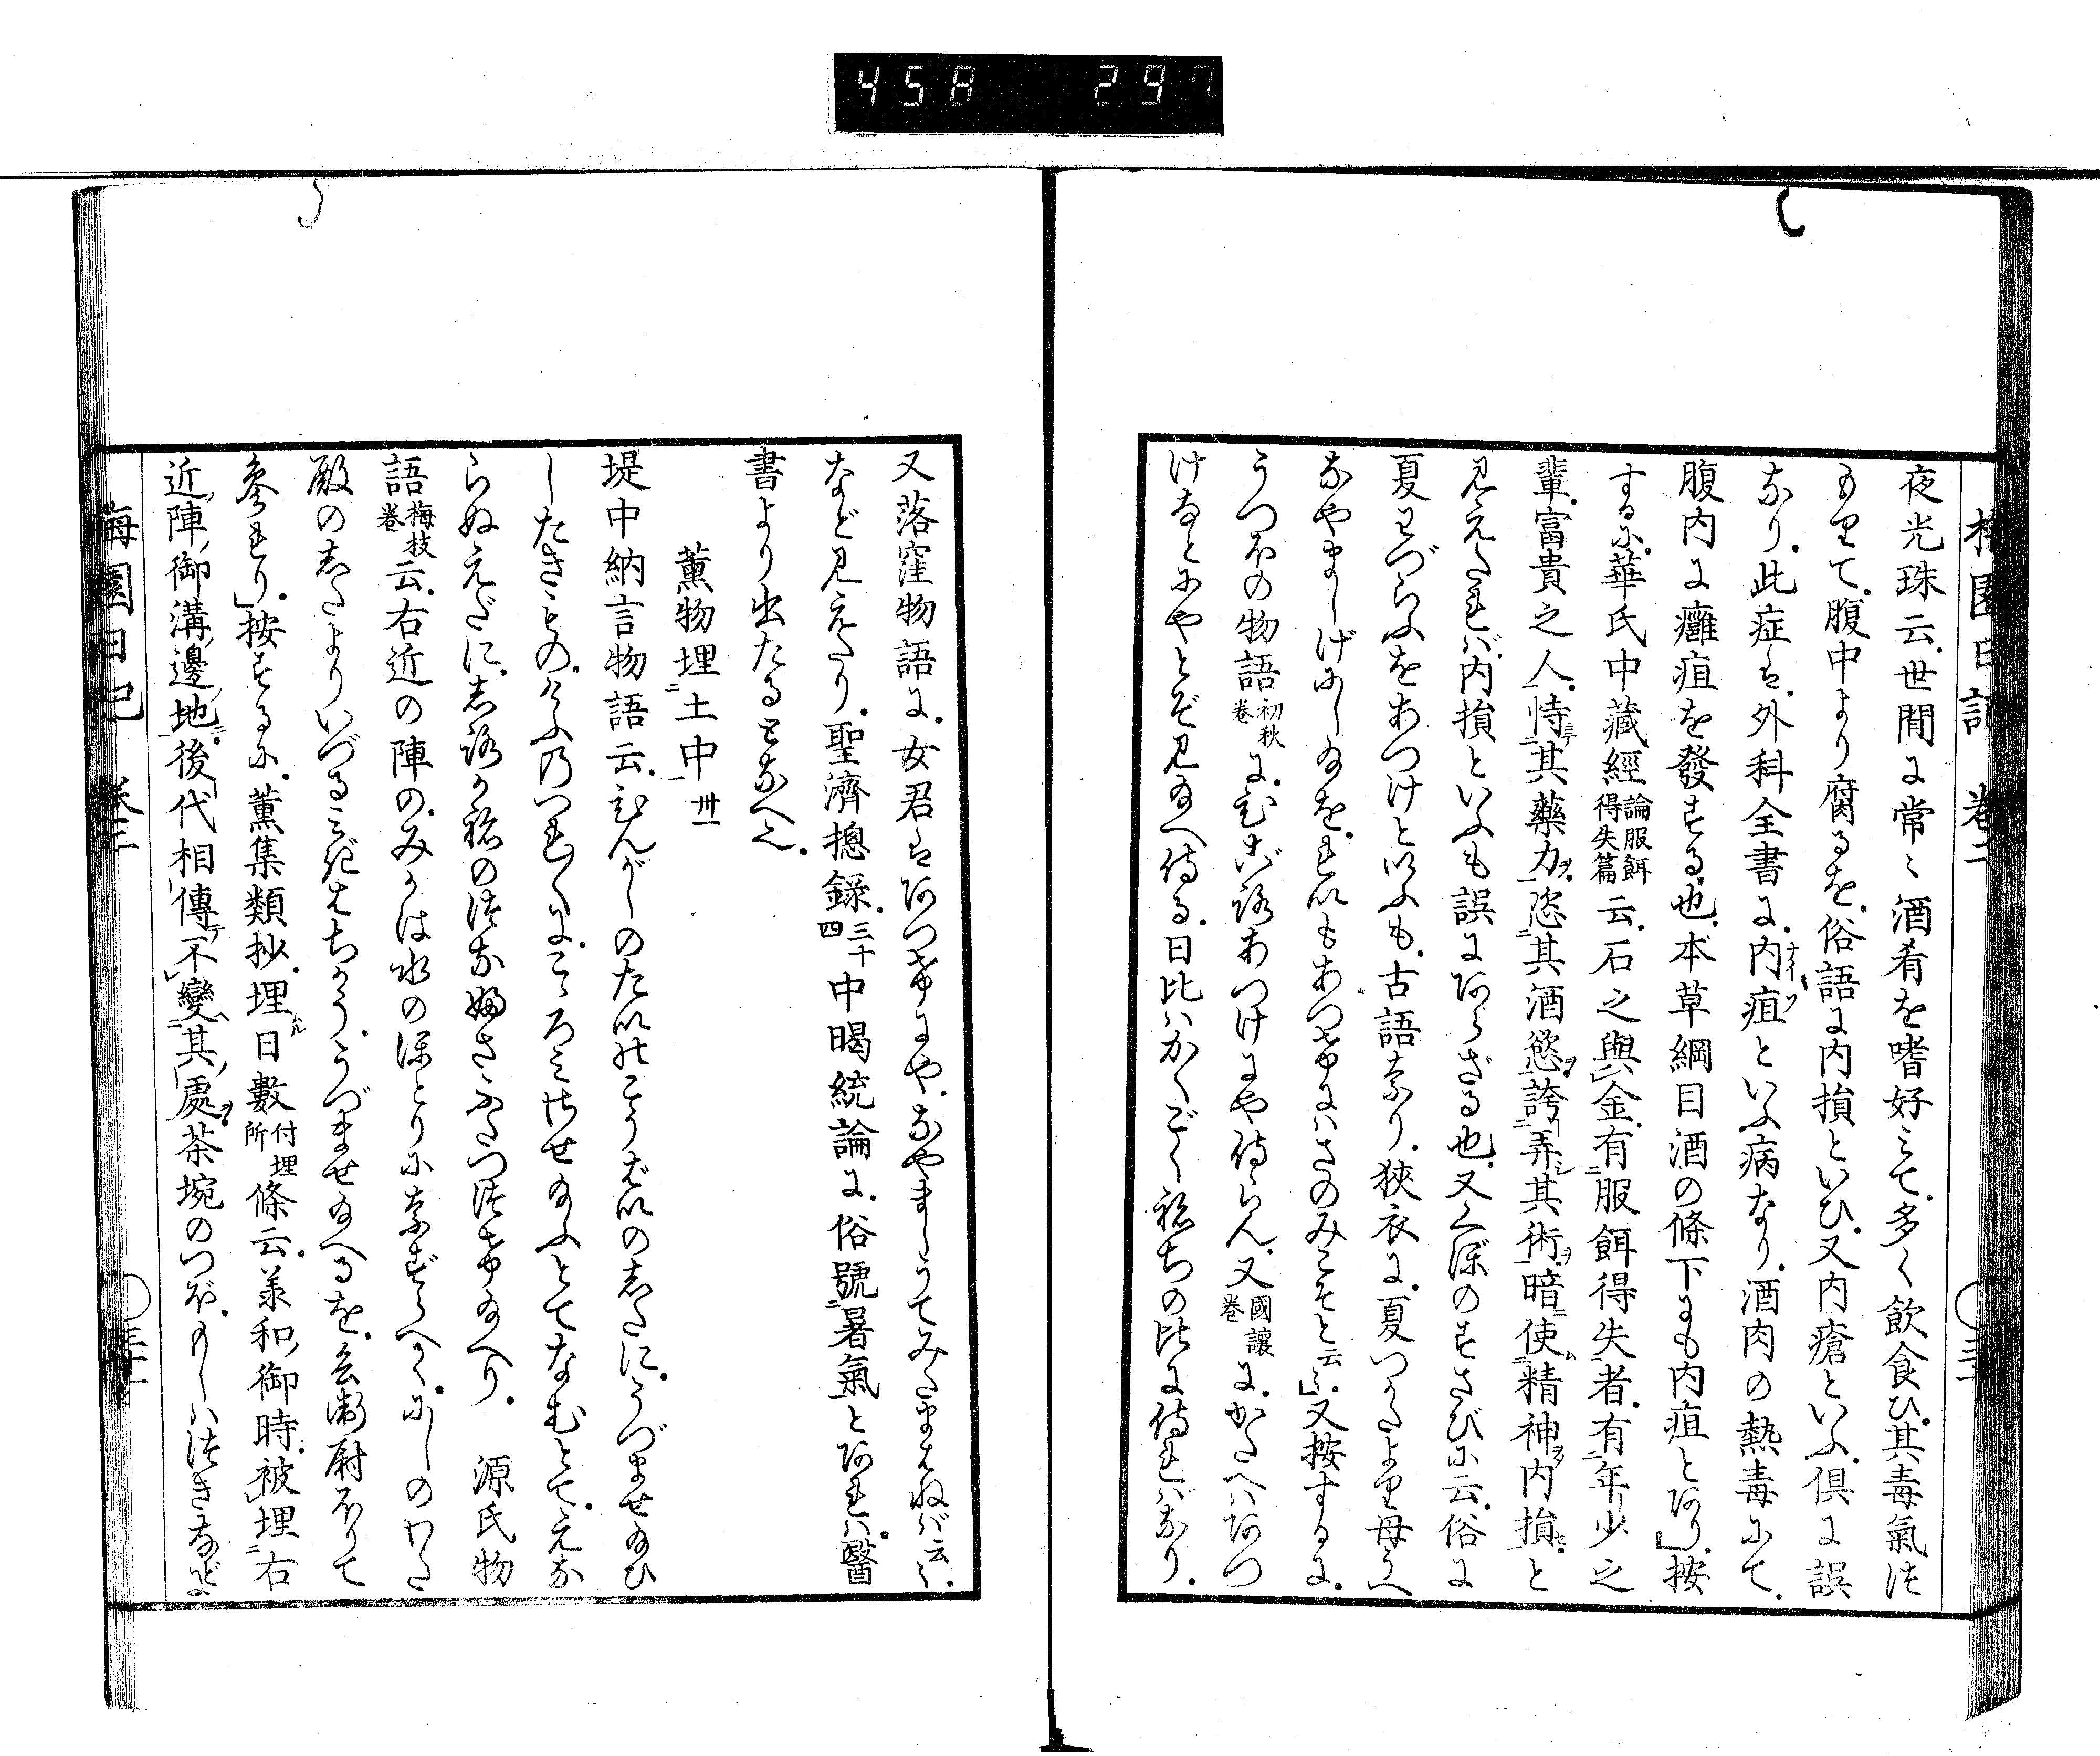 458 297
梅園日記 卷二 三十
夜光珠云。世間に常〻酒肴を嗜好みて。多く飲食ひ。其毒氣つ
もりて。腹中より腐るを。俗語に内損といひ。又内瘡といふ。倶に誤
なり。此症は。外科全書に。内疽ナイソといふ病なり。酒肉の熱毒にて。
腹内に癰疽を發する也。本草綱目酒の條下にも内疽とあり」。按
するに。華氏中藏經論服餌得失篇云。石之與金。有服餌得失者。有年少之
輩。富貴之人。恃其藥力。恣其酒慾。誇弄其術。暗使精神内損。と
見えたれば。内損といふも誤にあらざる也。又くぼのすさびに云。俗に
夏わづらふをあつけといふも。古語なり。狹衣に。夏つかたより母うへ
なやましげにし給を。れいもあつけにはさのみこそと云〻」。又按するに。
うつほの物語初秋卷に。むごろあつけにや侍らん。又國讓卷に。かたへはあつ
けなとにやとぞ見給へ侍る。日比はかくごく熱ちのほに侍ればなり。
又落窪物語に。女君はあつけにや。なやましうてみたまはねば云〻。
など見えたり。聖濟摠錄三十四中暍統論に。俗號暑氣とあれは。醫
書より出たることなへし。
薰物埋土中 卅一
堤中納言物語云。ひんがしのたいのこうばいのしたに。うづませ給ひ
したきもの。けふのつれ〴〵に。こゝろみさせ給ふとてなむとて。えな
らぬえだに。しろかねのつぼ二つつけ給へり。 源氏物
語梅枝卷云。右近の陣の。みかは水のほとりになずらへて。にしのわた
殿のしたよりいづるみぎはちかう。うづませ給へるを。兵衞尉ほりて
參れり」。按するに。薰集類抄。埋日數付埋所條云。承和御時。被埋右
近陣御溝邊地。後代相傳不變其處。茶埦のつぼ。もしはつきなどに
梅園日記 卷二 三十一